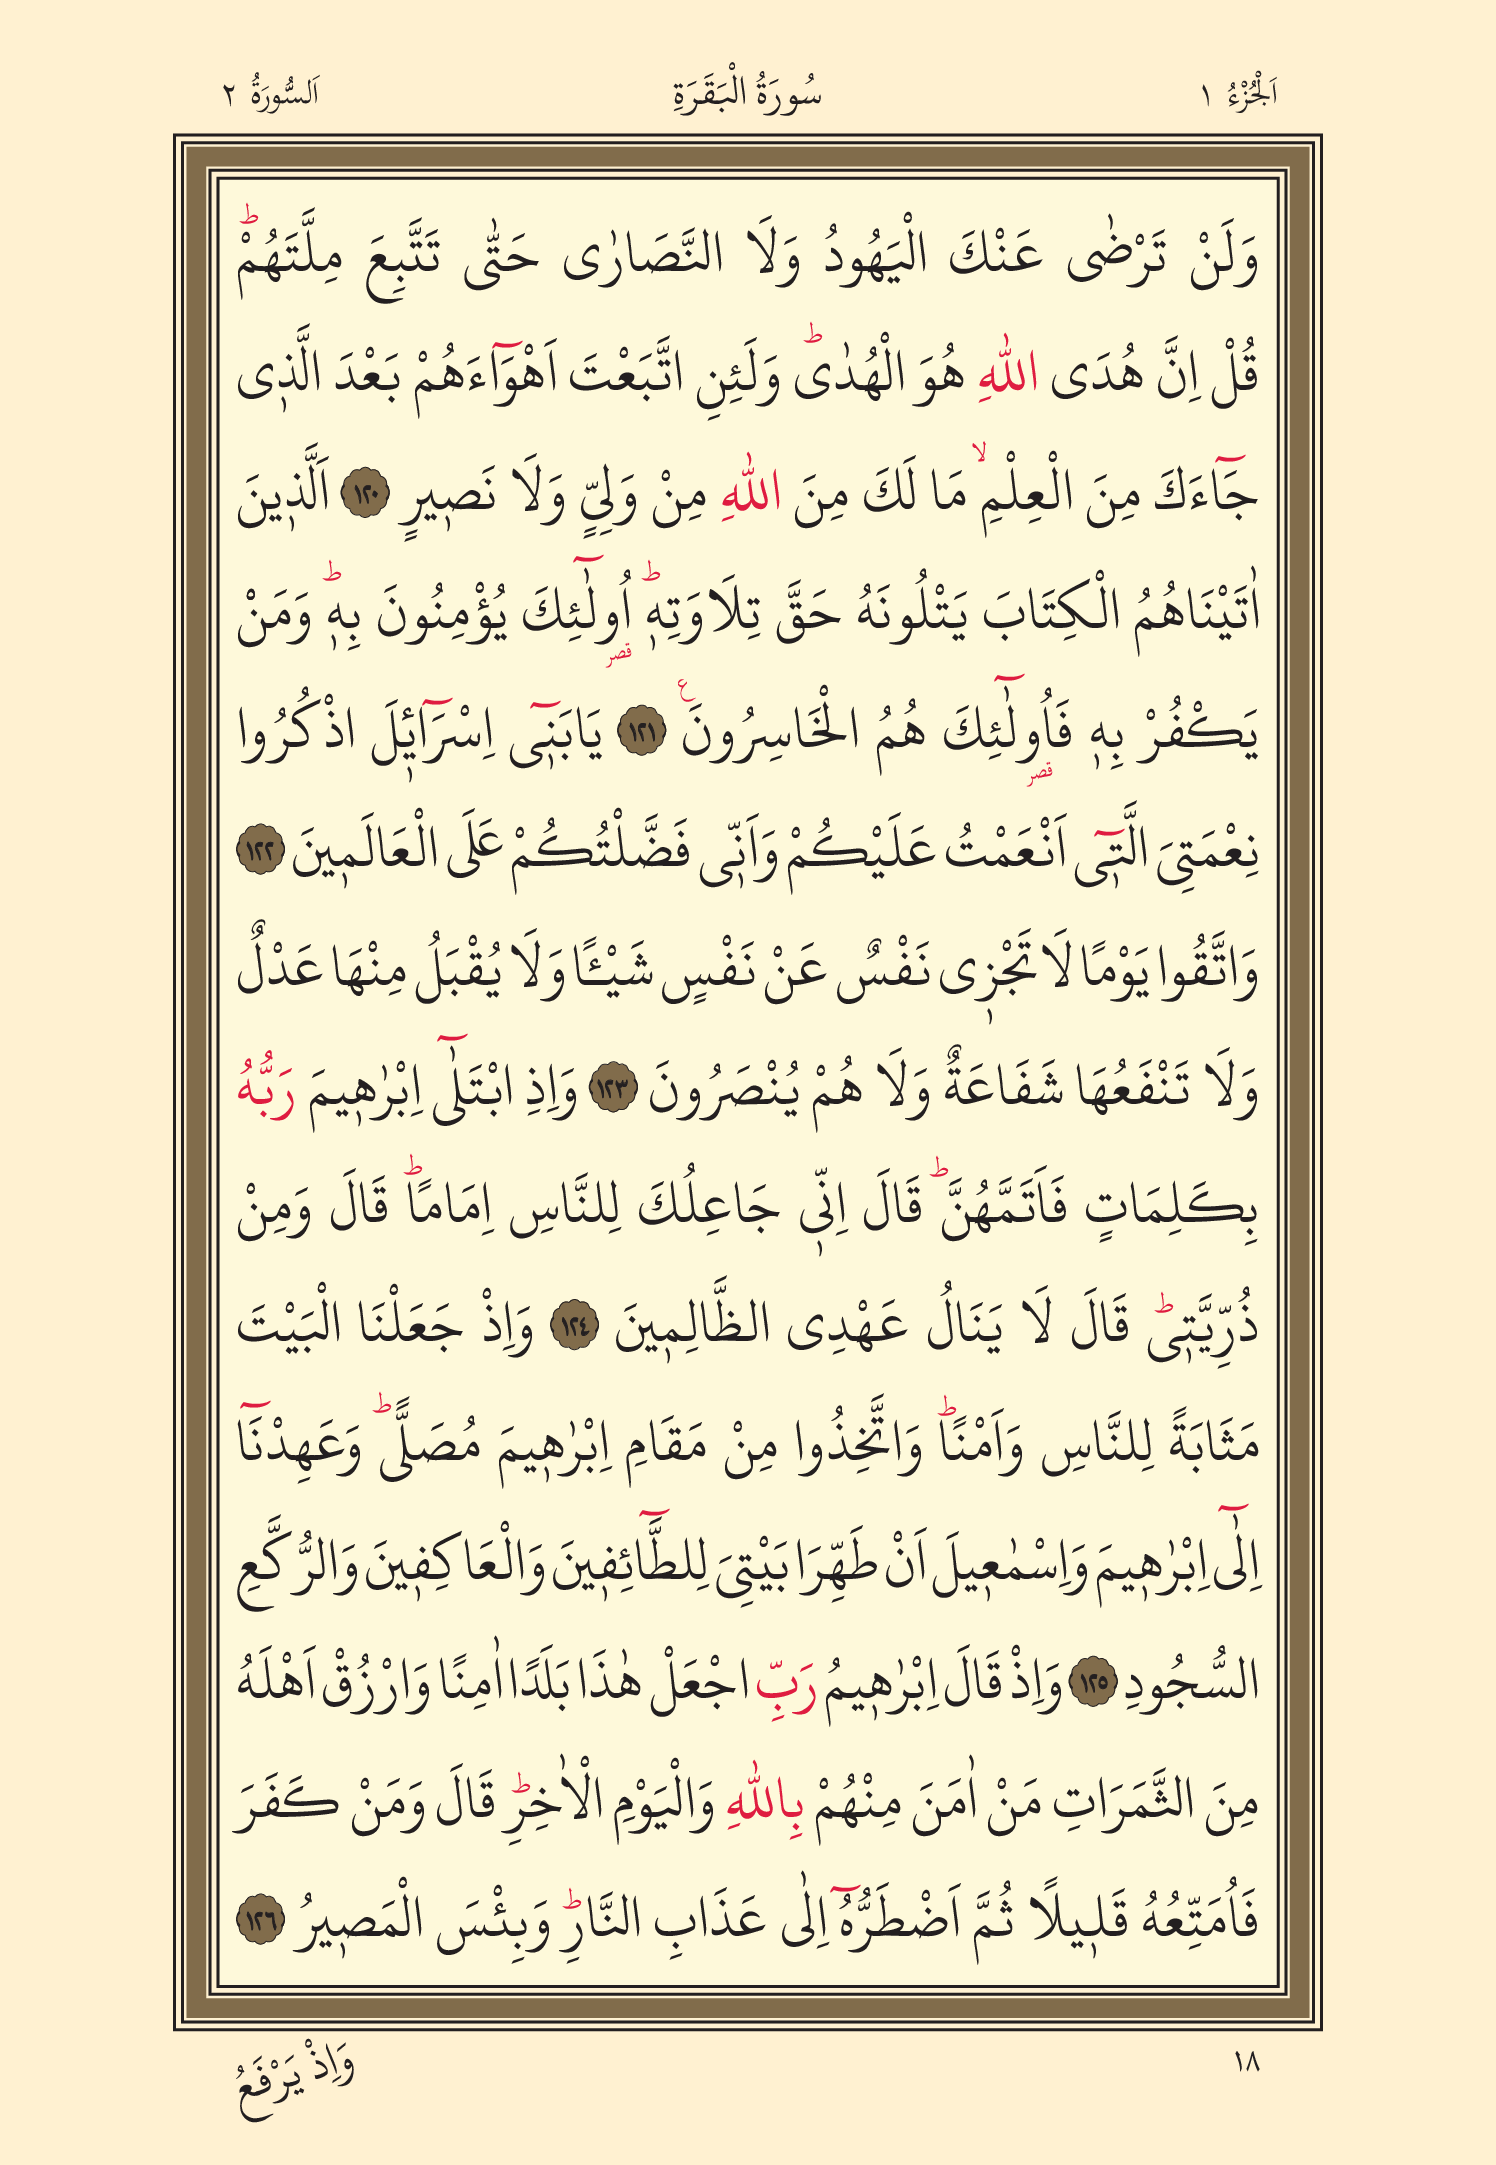 اَلْجُزْءُ ١ سُورَةُ الْبَقَرَةِ اَلسُّورَةُ ٢
وَلَنْ تَرْضٰى عَنْكَ الْيَهُودُ وَلَا النَّصَارٰى حَتّٰى تَتَّبِعَ مِلَّتَهُمْۜ
قُلْ اِنَّ هُدَى اللّٰهِ هُوَ الْهُدٰىۜ وَلَئِنِ اتَّبَعْتَ اَهْوَٓاءَهُمْ بَعْدَ الَّذ۪ى
جَٓاءَكَ مِنَ الْعِلْمِۙ مَا لَكَ مِنَ اللّٰهِ مِنْ وَلِيٍّ وَلَا نَص۪يرٍ ﴿١٢٠﴾ اَلَّذ۪ينَ
اٰتَيْنَاهُمُ الْكِتَابَ يَتْلُونَهُ حَقَّ تِلَاوَتِه۪ۜ اُو۬لٰٓئِكَ يُؤْمِنُونَ بِه۪ۜ وَمَنْ
قصر
يَكْفُرْ بِه۪ فَاُو۬لٰٓئِكَ هُمُ الْخَاسِرُونَ۟ ﴿١٢١﴾ يَابَن۪ٓى اِسْرَٓاء۪لَ اذْكُرُوا
قصر
نِعْمَتِىَ الَّت۪ٓى اَنْعَمْتُ عَلَيْكُمْ وَاَنّ۪ى فَضَّلْتُكُمْ عَلَى الْعَالَم۪ينَ ﴿١٢٢﴾
وَاتَّقُوا يَوْمًا لَا تَجْز۪ى نَفْسٌ عَنْ نَفْسٍ شَيْـًٔا وَلَا يُقْبَلُ مِنْهَا عَدْلٌ
وَلَا تَنْفَعُهَا شَفَاعَةٌ وَلَا هُمْ يُنْصَرُونَ ﴿١٢٣﴾ وَاِذِ ابْتَلٰٓى اِبْرٰه۪يمَ رَبُّهُ
بِكَلِمَاتٍ فَاَتَمَّهُنَّۜ قَالَ اِنّ۪ى جَاعِلُكَ لِلنَّاسِ اِمَامًاۜ قَالَ وَمِنْ
ذُرِّيَّت۪ىۜ قَالَ لَا يَنَالُ عَهْدِى الظَّالِم۪ينَ ﴿١٢٤﴾ وَاِذْ جَعَلْنَا الْبَيْتَ
مَثَابَةً لِلنَّاسِ وَاَمْنًاۜ وَاتَّخِذُوا مِنْ مَقَامِ اِبْرٰه۪يمَ مُصَلًّىۜ وَعَهِدْنَٓا
اِلٰٓى اِبْرٰه۪يمَ وَاِسْمٰع۪يلَ اَنْ طَهِّرَا بَيْتِىَ لِلطَّٓائِف۪ينَ وَالْعَاكِف۪ينَ وَالرُّكَّعِ
السُّجُودِ ﴿١٢٥﴾ وَاِذْ قَالَ اِبْرٰه۪يمُ رَبِّ اجْعَلْ هٰذَا بَلَدًا اٰمِنًا وَارْزُقْ اَهْلَهُ
مِنَ الثَّمَرَاتِ مَنْ اٰمَنَ مِنْهُمْ بِاللّٰهِ وَالْيَوْمِ الْاٰخِرِۜ قَالَ وَمَنْ كَفَرَ
فَاُمَتِّعُهُ قَل۪يلًا ثُمَّ اَضْطَرُّهُٓ اِلٰى عَذَابِ النَّارِۜ وَبِئْسَ الْمَص۪يرُ ﴿١٢٦﴾
١٨ وَاِذْ يَرْفَعُ